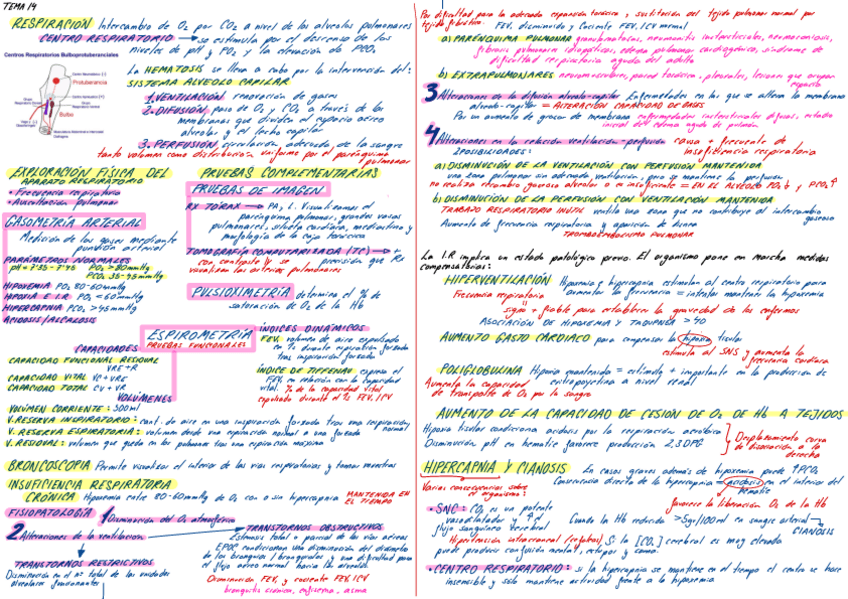 TEMA 14
RESPIRACIÓN Intercambio de O₂ por CO₂ a nivel de los alveolos pulmonares
CENTRO RESPIRATORIO → se estimula por el descenso de los
niveles de pH y PO₂ y la elevación de PCO₂
Centros Respiratorios Bulboprotuberanciales
Protuberancia
La HEMATOSIS se lleva a cabo por la intervención del:
SISTEMA ALVEOLO CAPILAR
1. VENTILACIÓN renovación de gases
2. DIFUSIÓN, paso de O₂ y CO₂ a través de las
membranas que dividen el espacio aéreo
alveolar y el lecho capilar
3. PERFUSIÓN, circulación adecuada, de la sangre
tanto volumen como distribución uniforme por el parénquima
pulmonar
EXPLORACIÓN FÍSICA DEL
APARATO RESPIRATORIO
• Frecuencia respiratoria
• Auscultación pulmonar
GASOMETRÍA ARTERIAL
Medición de los gases mediante
punción arterial
PARÁMETROS NORMALES
pH = 7'35 - 7'45 PO₂ > 80 mmHg
PCO₂ 35-45 mmHg
HIPOXEMIA PO₂ 80-60 mmHg
HIPOXIA E I.R. PO₂ < 60 mmHg
HIPERCAPNIA PCO₂ > 45 mmHg
ACIDOSIS/ALCALOSIS
PRUEBAS COMPLEMENTARIAS
PRUEBAS DE IMAGEN
RX TÓRAX → PA, L. Visualizamos el
parénquima pulmonar, grandes vasos
pulmonares, silueta cardiaca, mediastino y
morfología de la caja torácica
TOMOGRAFÍA COMPUTARIZADA (TC) → +
con contraste IV se precisión que RX
visualizan las arterias pulmonares
PULSIOXIMETRÍA determina el % de
saturación de O₂ de la Hb
ESPIROMETRÍA
PRUEBAS FUNCIONALES
CAPACIDADES
CAPACIDAD FUNCIONAL RESIDUAL
VRE + R
CAPACIDAD VITAL VC + VRE
CAPACIDAD TOTAL CV + VR
VOLÚMENES
VOLÚMEN CORRIENTE: 500ml
V. RESERVA INSPIRATORIO: cant. de aire en una inspiración forzada tras una normal
V. RESERVA ESPIRATORIA: volumen desde una espiración normal a una forzada
V. RESIDUAL: volumen que queda en los pulmones tras una espiración máxima
ÍNDICES DINÁMICOS
FEV₁ volumen de aire expulsado
en 1s durante espiración forzada
tras inspiración forzada
ÍNDICE DE TIFFENAU expresa el
FEV₁ en relación con la capacidad
vital. % de la capacidad vital
expulsado durante el 1s FEV₁/CV
BRONCOSCOPIA Permite visualizar el interior de las vías respiratorias y tomar muestras
INSUFICIENCIA RESPIRATORIA
CRÓNICA Hipoxemia entre 80-60mmHg de O₂ con o sin hipercapnia MANTENIDA EN
EL TIEMPO
FISIOPATOLOGÍA 1 Disminución del O₂ atmosférico
2 Alteraciones de la ventilación
TRANSTORNOS OBSTRUCTIVOS
Estenosis total o parcial de las vías aéreas
EPOC, condicionan una disminución del diámetro
de los bronquios/bronquiolos y una dificultad para
el flujo aéreo normal hacia los alveolos
Disminución FEV₁ y cociente FEV₁/CV
bronquitis crónica, enfisema, asma
TRANSTORNOS RESTRICTIVOS
Disminución en el nº total de las unidades
alveolares funcionantes
Por dificultad para la adecuada expansión torácica y sustitución del tejido pulmonar normal por
tejido fibrótico FEV₁ disminuido y Cociente FEV₁/CV normal
a) PARÉNQUIMA PULMONAR granulomatosas, neumonitis intersticiales, neumoconiosis,
fibrosis pulmonares idiopáticas, edema pulmonar cardiogénico, síndrome de
dificultad respiratoria aguda del adulto
b) EXTRAPULMONARES neuromusculares, pared torácica, pleurales, lesiones que ocupan
espacio
3 Alteraciones de la difusión alveolo-capilar Enfermedades en las que se altera la membrana
alveolo-capilar = ALTERACIÓN CAPACIDAD DE GASES
Por un aumento de grosor de membrana enfermedades intersticiales difusas, estadio
inicial del edema agudo de pulmón
4 Alteraciones en la relación ventilación-perfusión causa + frecuente de
insuficiencia respiratoria
2 POSIBILIDADES:
a) DISMINUCIÓN DE LA VENTILACIÓN CON PERFUSIÓN MANTENIDA
una zona pulmonar sin adecuada ventilación, pero se mantiene la perfusión
no realiza recambio gaseoso alveolar o es insuficiente = EN EL ALVEOLO PO₂↓ y PCO₂↑
b) DISMINUCIÓN DE LA PERFUSIÓN CON VENTILACIÓN MANTENIDA
TRABAJO RESPIRATORIO INÚTIL ventila una zona que no contribuye al intercambio
gaseoso
Aumento de frecuencia respiratoria y aparición de disnea
TROMBOEMBOLISMO PULMONAR
La I.R. implica un estado patológico previo. El organismo pone en marcha medidas
compensatorias:
HIPERVENTILACIÓN Hipoxemia y hipercapnia estimulan al centro respiratorio para
aumentar la frecuencia = intentar mantener la hipoxemia
Frecuencia respiratoria
signo + fiable para establecer la gravedad de los enfermos
ASOCIACIÓN DE HIPOXEMIA Y TAQUIPNEA > 40
AUMENTO GASTO CARDIACO para compensar la hipoxia tisular
estimula al SNS y aumenta la
frecuencia cardiaca
POLIGLOBULINA Hipoxia mantenida = estímulo + importante en la producción de
eritropoyetina a nivel renal
Aumenta la capacidad
de transporte de O₂ por la sangre
AUMENTO DE LA CAPACIDAD DE CESIÓN DE O₂ DE Hb A TEJIDOS
Hipoxia tisular condiciona acidosis por la respiración aeróbica
Disminución pH en hematíe favorece producción 2,3 DPG
Desplazamiento curva
de disociación a la
derecha
HIPERCAPNIA Y CIANOSIS En casos graves además de hipoxemia puede ↑PCO₂
Consecuencia directa de la hipercapnia = acidosis en el interior del
hematíe
Varias consecuencias sobre
el organismo:
favorece la liberación O₂ de la Hb
• SNC: CO₂ es un potente
vasodilatador = ↑
flujo sanguíneo cerebral
Cuando la Hb reducida > 5gr/100ml en sangre arterial →
CIANOSIS
Hipertensión intracraneal (cefaleas) Si la [CO₂] cerebral es muy elevada
puede producir confusión mental, estupor y coma.
• CENTRO RESPIRATORIO: si la hipercapnia se mantiene en el tiempo el centro se hace
insensible y solo mantiene actividad frente a la hipoxemia